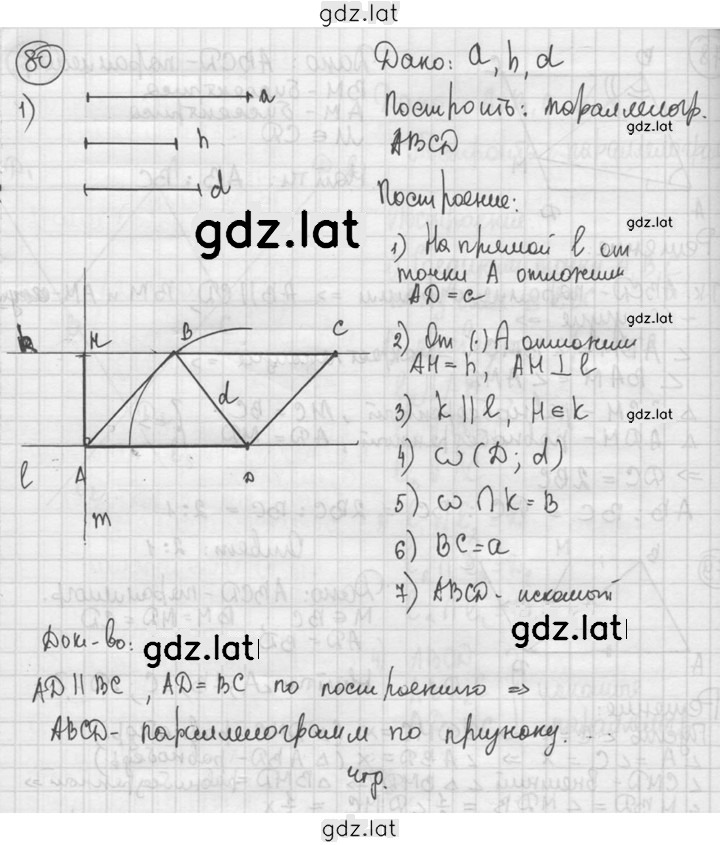 gdz.lat
80
1)
a
h
d
Дано: a, h, d
Построить: параллелогр.
gdz.lat
ABCD
Построение:
gdz.lat
gdz.lat
1) На прямой l от
точки A отложим
AD = a
gdz.lat
2) От (·) A отложим
AH = h, AH ⊥ l
3) k || l, H ∈ k
gdz.lat
4) ω (D; d)
5) ω ∩ k = B
6) BC = a
7) ABCD - искомый
k H B C
d
l A D
m
gdz.lat
Док-во:
gdz.lat
AD || BC, AD = BC по построению ⇒
ABCD - параллелограмм по призноку.
чтд.
gdz.lat